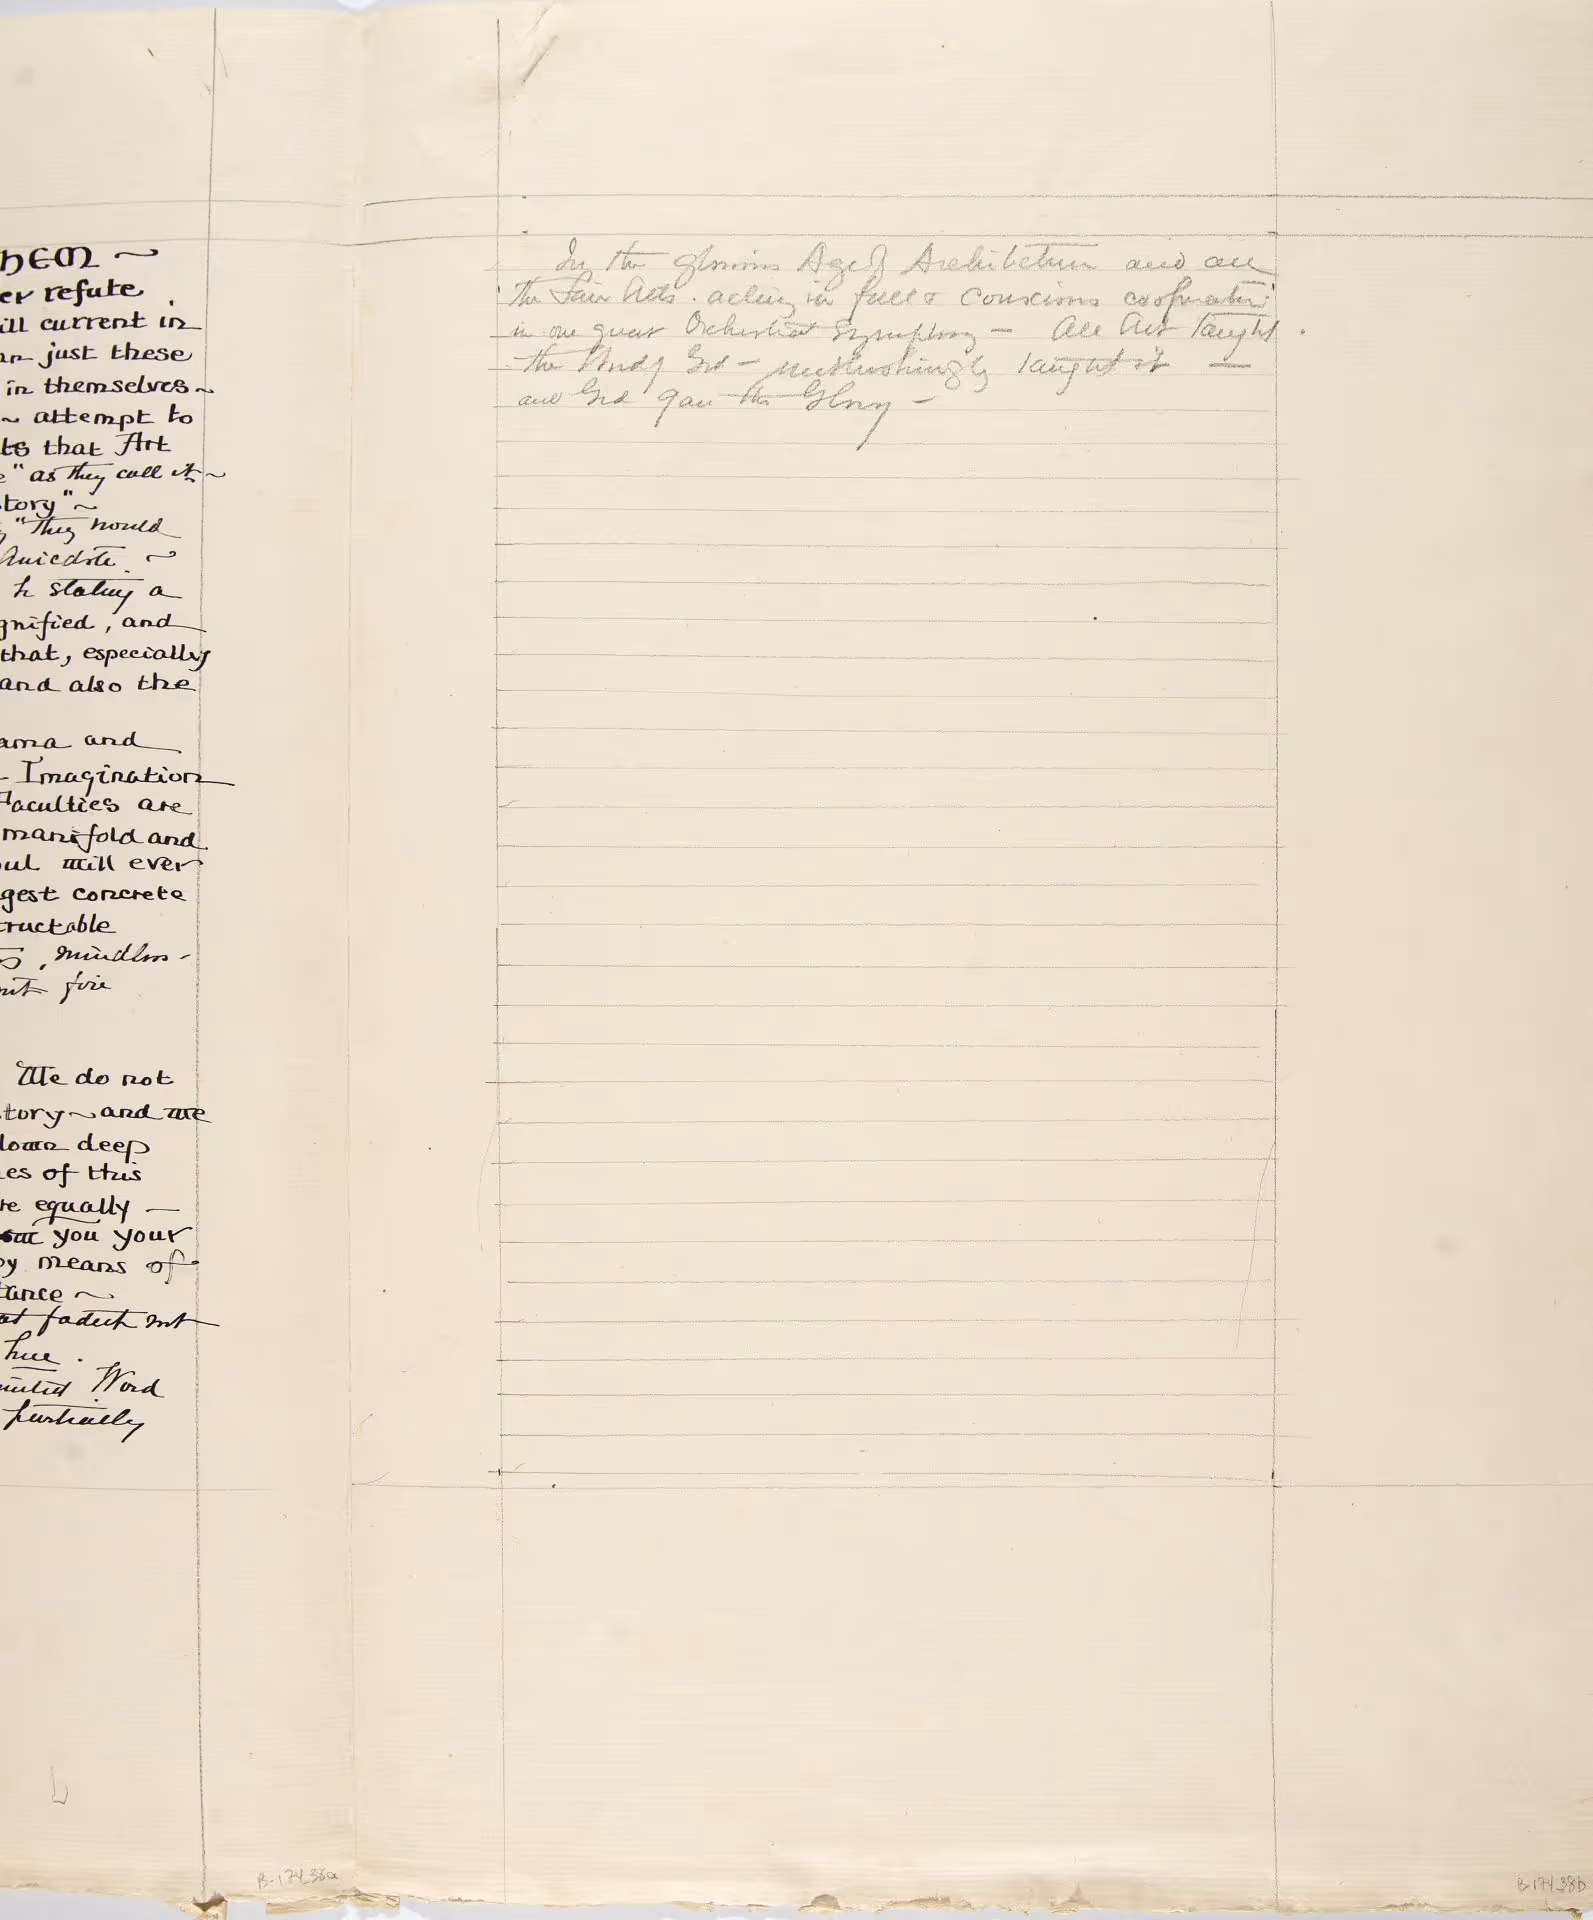 hEM ~
er refute
ill current in
an just these
in themselves ~
~ attempt to
ts that Art
e" as they call it ~
tory" ~
"They would
Anecdote. ~
to stating a
gnified, and
that, especially
and also the
ama and
- Imagination
Faculties are
manifold and
oul will ever
gest concrete
tructable
, mindless -
fire
We do not
tory ~ and we
down deep
es of this
re equally —
you your
by means of
tance ~
at fadeth not
hue.
Word
partially
In the glorious Age of Architecture and all
the Fair Arts. acting in full & conscious cooperation
in one great Orchestral Symphony — All Art taught
the Word of God — unblushingly taught it —
and God gave the Glory —
B-174_38a
B-174_38b